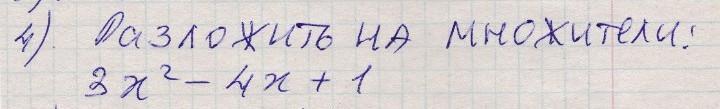 4). Разложить на множители:
3x² - 4x + 1